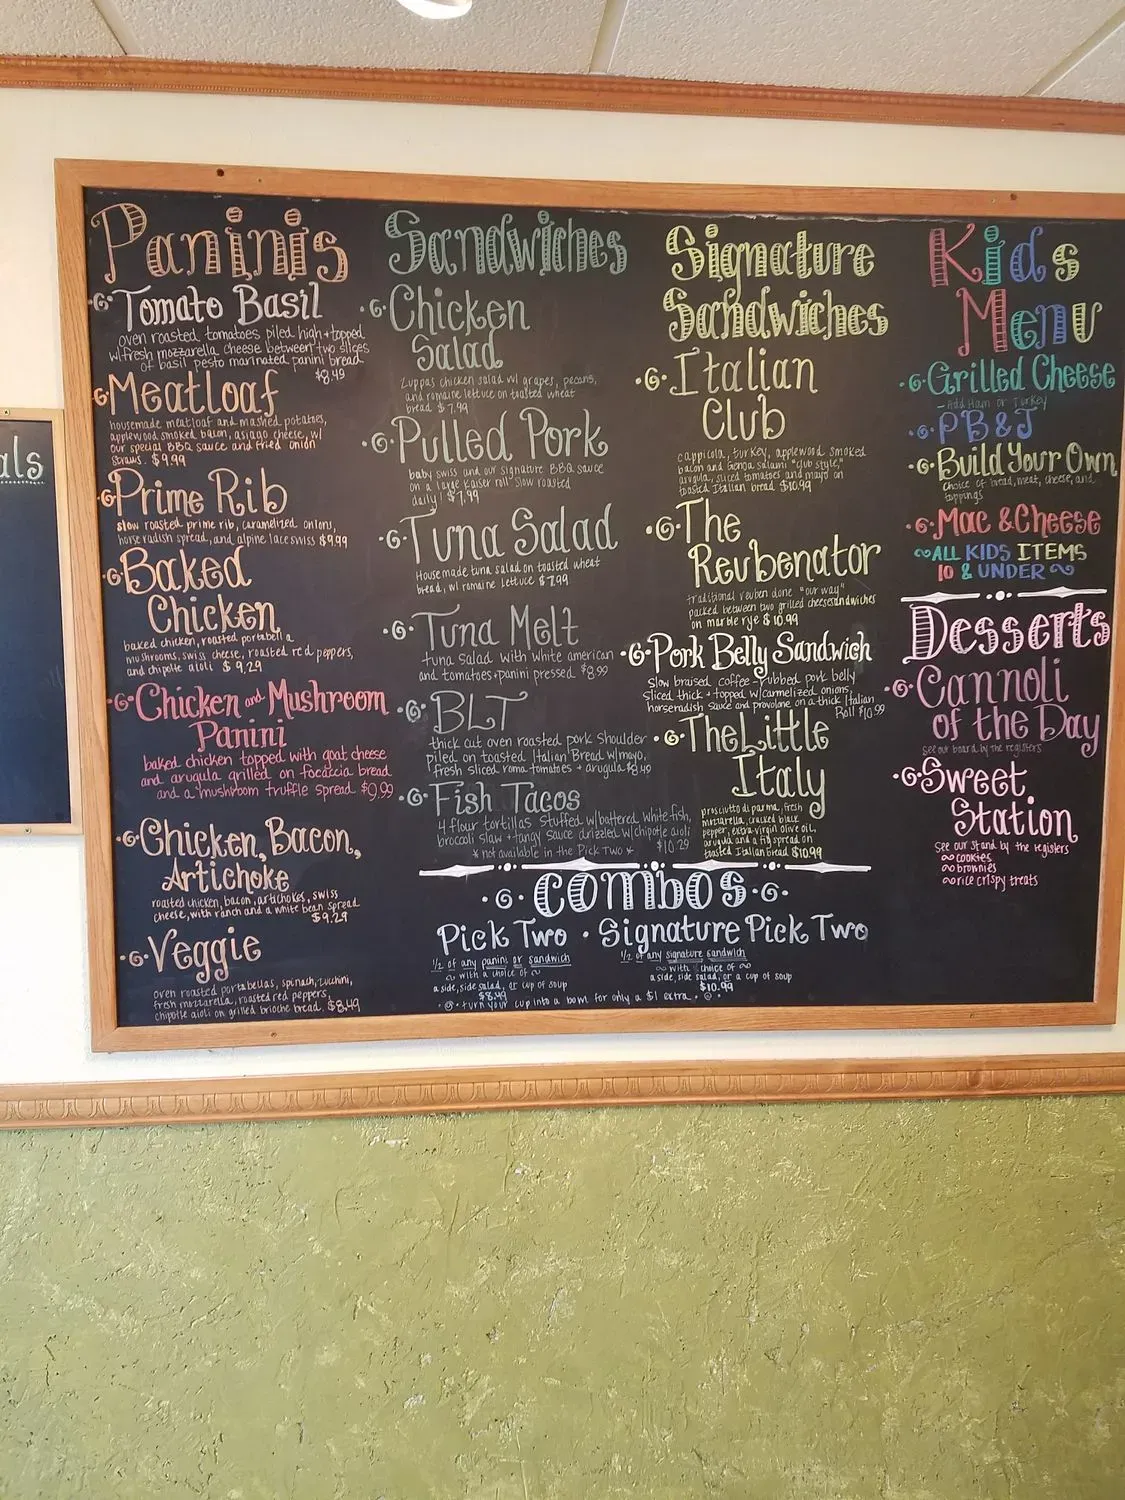 als
Paninis
Tomato Basil
oven roasted tomatoes piled high + topped
w/ fresh mozzarella cheese between two slices
of basil pesto marinated panini bread
$8.49
Meatloaf
housemade meatloaf and mashed potatoes,
applewood smoked bacon, asiago cheese, w/
our special BBQ sauce and fried onion
straws. $9.99
Prime Rib
slow roasted prime rib, caramelized onions,
horseradish spread, and alpine lace swiss $9.99
Baked
Chicken
baked chicken, roasted portabella
mushrooms, swiss cheese, roasted red peppers,
and chipotle aioli $9.29
Chicken and Mushroom
Panini
baked chicken topped with goat cheese
and arugula grilled on focaccia bread
and a mushroom truffle spread $9.99
Chicken, Bacon,
Artichoke
roasted chicken, bacon, artichokes, swiss
cheese, with ranch and a white bean spread
$9.29
Veggie
oven roasted portabellas, spinach, zucchini,
fresh mozzarella, roasted red peppers,
chipotle aioli on grilled brioche bread. $8.49
Sandwiches
Chicken
Salad
Zuppas chicken salad w/ grapes, pecans,
and romaine lettuce on toasted wheat
bread $7.99
Pulled Pork
baby swiss and our signature BBQ sauce
on a large kaiser roll "slow roasted
daily! $7.99
Tuna Salad
Housemade tuna salad on toasted wheat
bread, w/ romaine lettuce $7.99
Tuna Melt
tuna salad with white american
and tomatoes + panini pressed $8.99
BLT
thick cut oven roasted pork shoulder
piled on toasted Italian Bread w/ mayo,
fresh sliced roma tomatoes + arugula $8.49
Fish Tacos
4 flour tortillas stuffed w/ battered white fish,
broccoli slaw + tangy sauce drizzled w/ chipotle aioli
*not available in the Pick Two* $10.29
Signature
Sandwiches
Italian
Club
cappicola, turkey, applewood smoked
bacon and Genoa salami "club style,"
arugula, sliced tomatoes and mayo on
toasted Italian bread $10.99
The
Reubenator
traditional reuben done "our way"
packed between two grilled cheese sandwiches
on marble rye $10.99
Pork Belly Sandwich
Slow braised, coffee-rubbed pork belly
sliced thick + topped w/ carmelized onions,
horseradish sauce and provolone on a thick Italian
Roll $10.99
The Little
Italy
prosciutto di parma, fresh
mozzarella, cracked black
pepper, extra-virgin olive oil,
arugula and a fig spread on
toasted Italian bread $10.99
Combos
Pick Two · Signature Pick Two
1/2 of any panini or sandwich
with a choice of
a side, side salad, or cup of soup
$8.49
1/2 of any signature sandwich
with choice of
a side, side salad, or a cup of soup
$10.99
turn your cup into a bowl for only a $1 extra.
Kids
Menu
Grilled Cheese
- Add Ham or Turkey
PB & J
Build Your Own
choice of bread, meat, cheese, and
toppings
Mac & Cheese
ALL KIDS ITEMS
10 & UNDER
Desserts
Cannoli
of the Day
see our board by the registers
Sweet
Station
See our stand by the registers
cookies
brownies
rice crispy treats